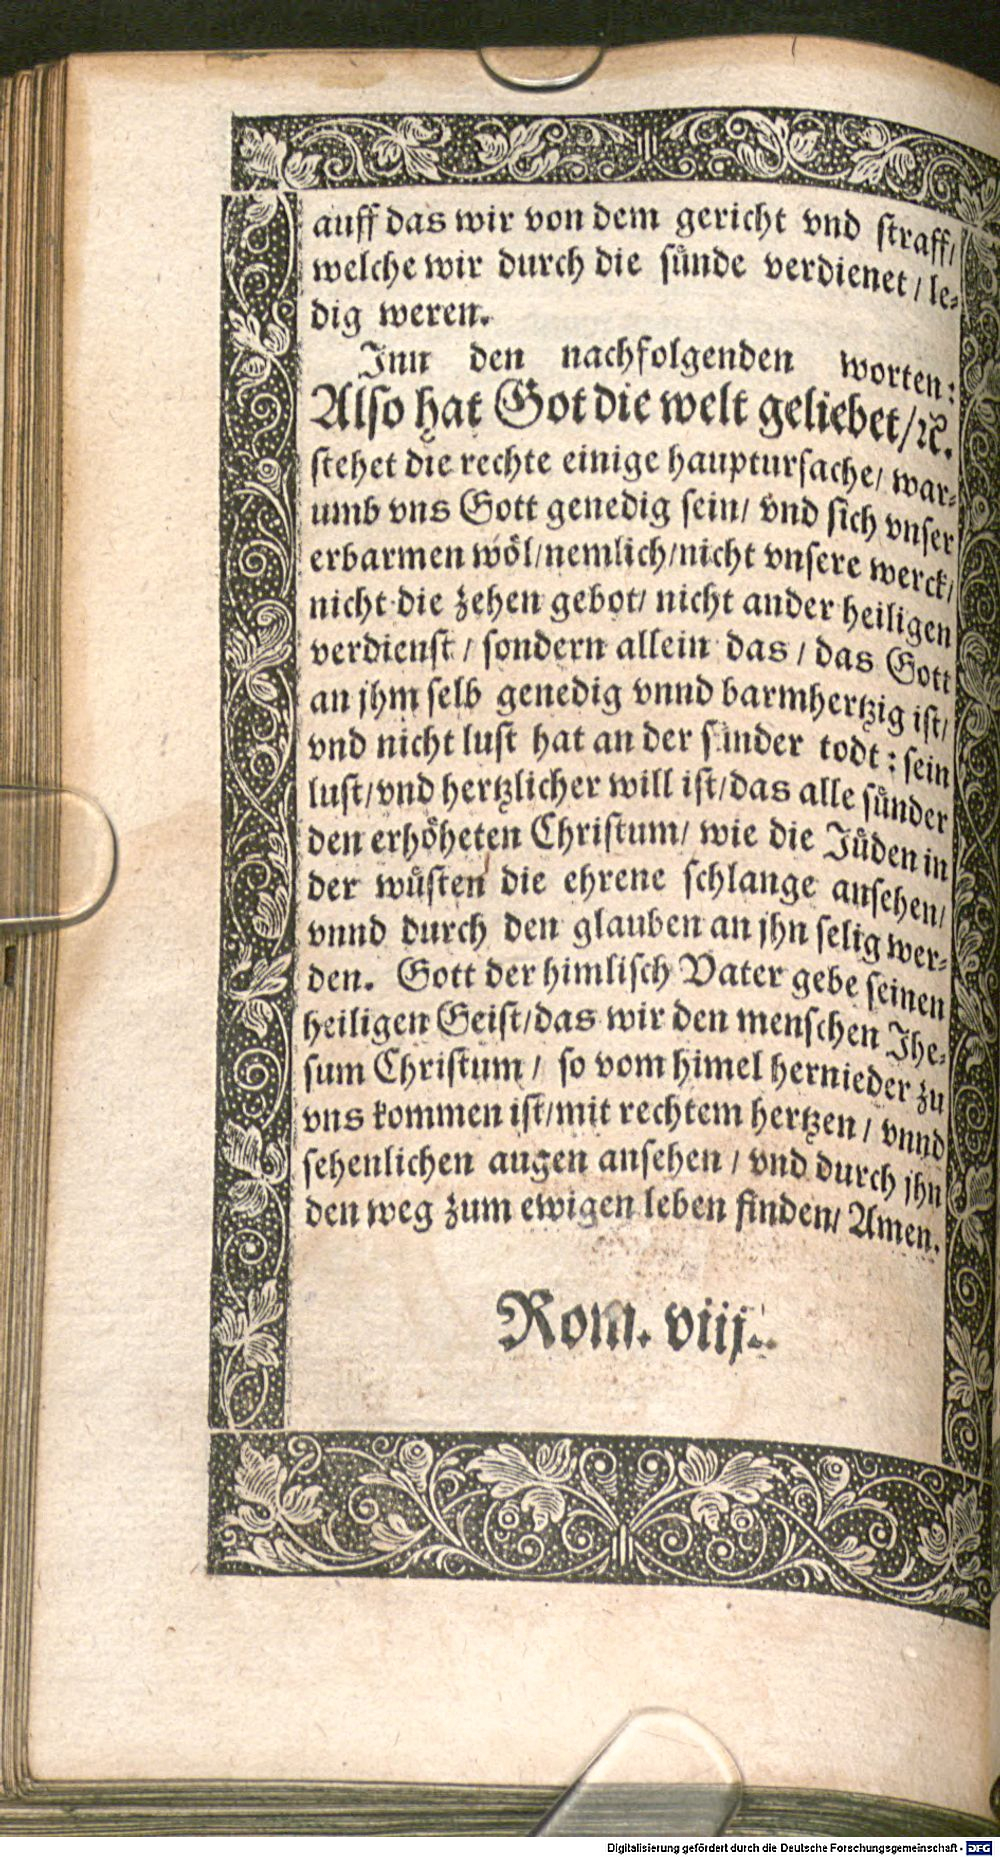 auff das wir von dem gericht vnd straff/
welche wir durch die sünde verdienet / le-
dig weren.
Inn den nachfolgenden worten:
Also hat Got die welt geliebet/ ꝛc.
stehet die rechte einige hauptursache/ war-
umb vns Gott genedig sein/ vnd sich vnser
erbarmen wöl/nemlich/nicht vnsere werck/
nicht die zehen gebot/ nicht ander heiligen
verdienst / sondern allein das / das Gott
an jhm selb genedig vnnd barmhertzig ist/
vnd nicht lust hat an der sünder todt: sein
lust/vnd hertzlicher will ist/das alle sünder
den erhöheten Christum/ wie die Jüden in
der wüsten die ehrene schlange ansehen/
vnnd durch den glauben an jhn selig wer-
den. Gott der himlisch Vater gebe seinen
heiligen Geist/das wir den menschen Jhe-
sum Christum / so vom himel hernieder zu
vns kommen ist/mit rechtem hertzen / vnnd
sehenlichen augen ansehen / vnd durch jhn
den weg zum ewigen leben finden/ Amen.
Rom. viij.
Digitalisierung gefördert durch die Deutsche Forschungsgemeinschaft - DFG